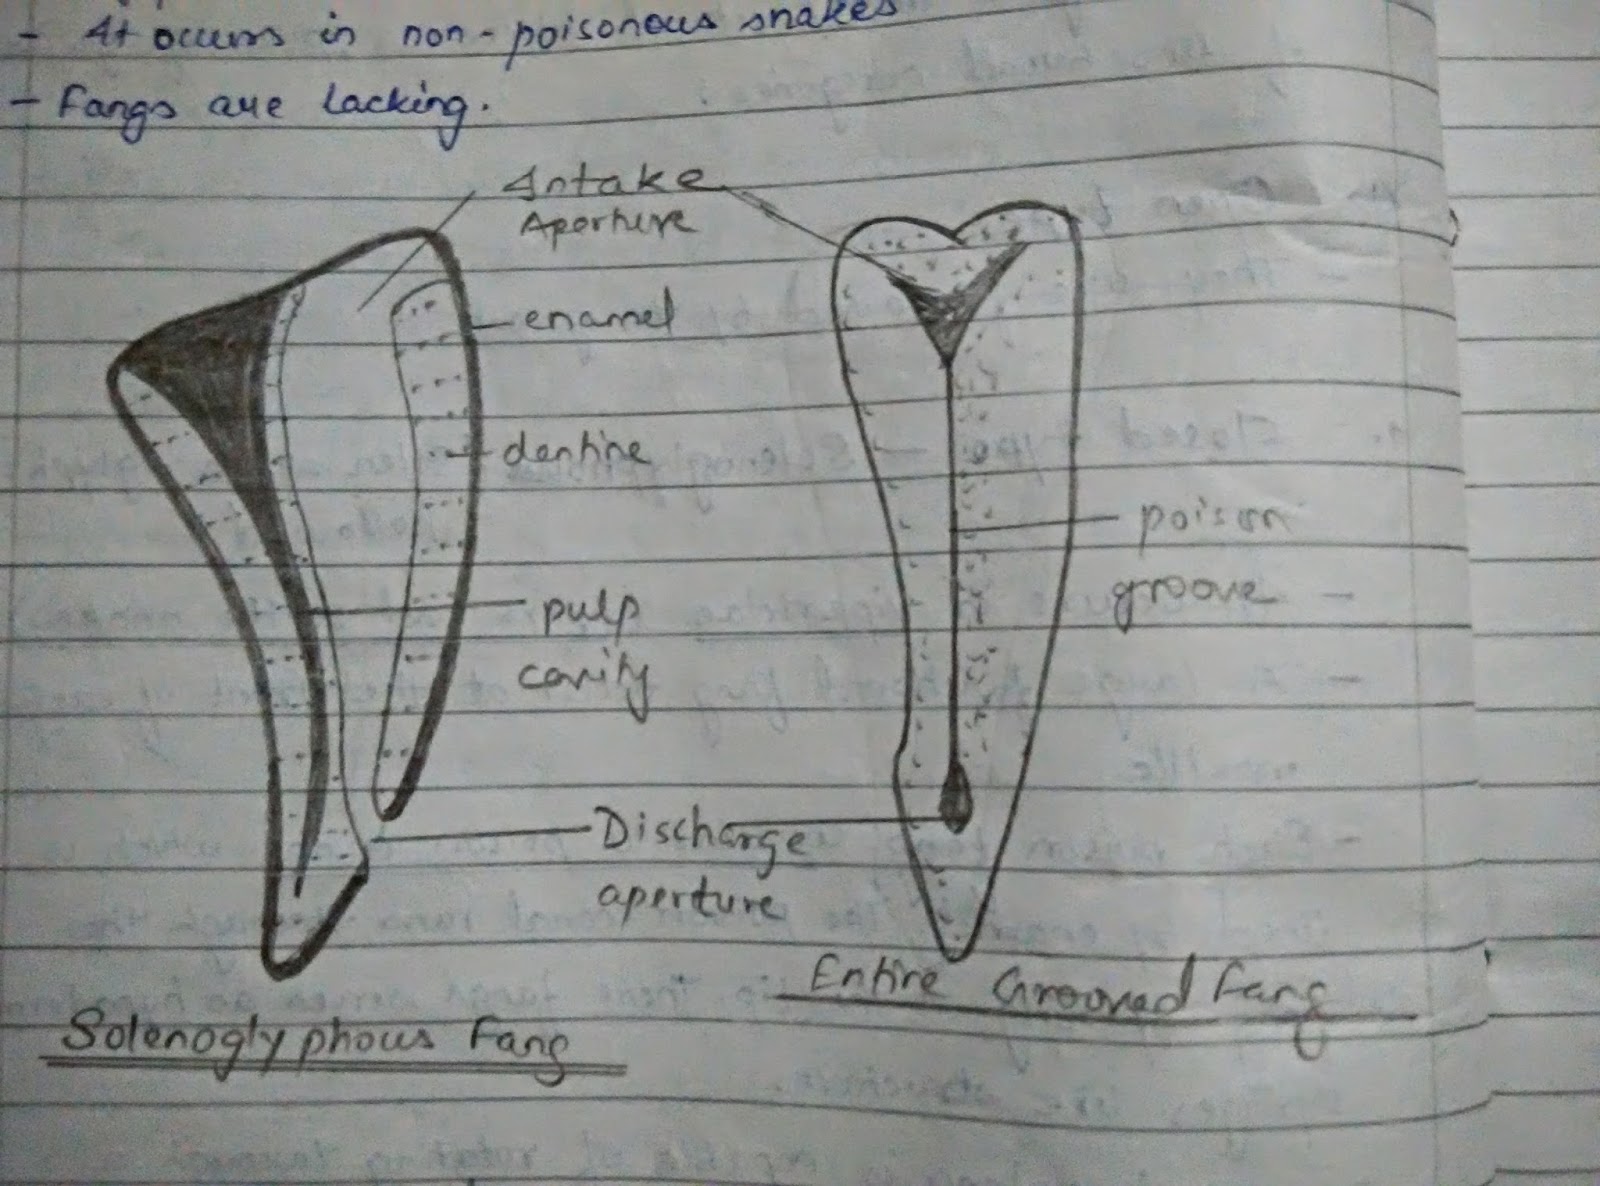 - It occurs in non-poisonous snakes
- Fangs are lacking.
Intake
Aperture
enamel
dentine
pulp
cavity
poison
groove
Discharge
aperture
Entire Grooved Fang
Solenoglyphous Fang